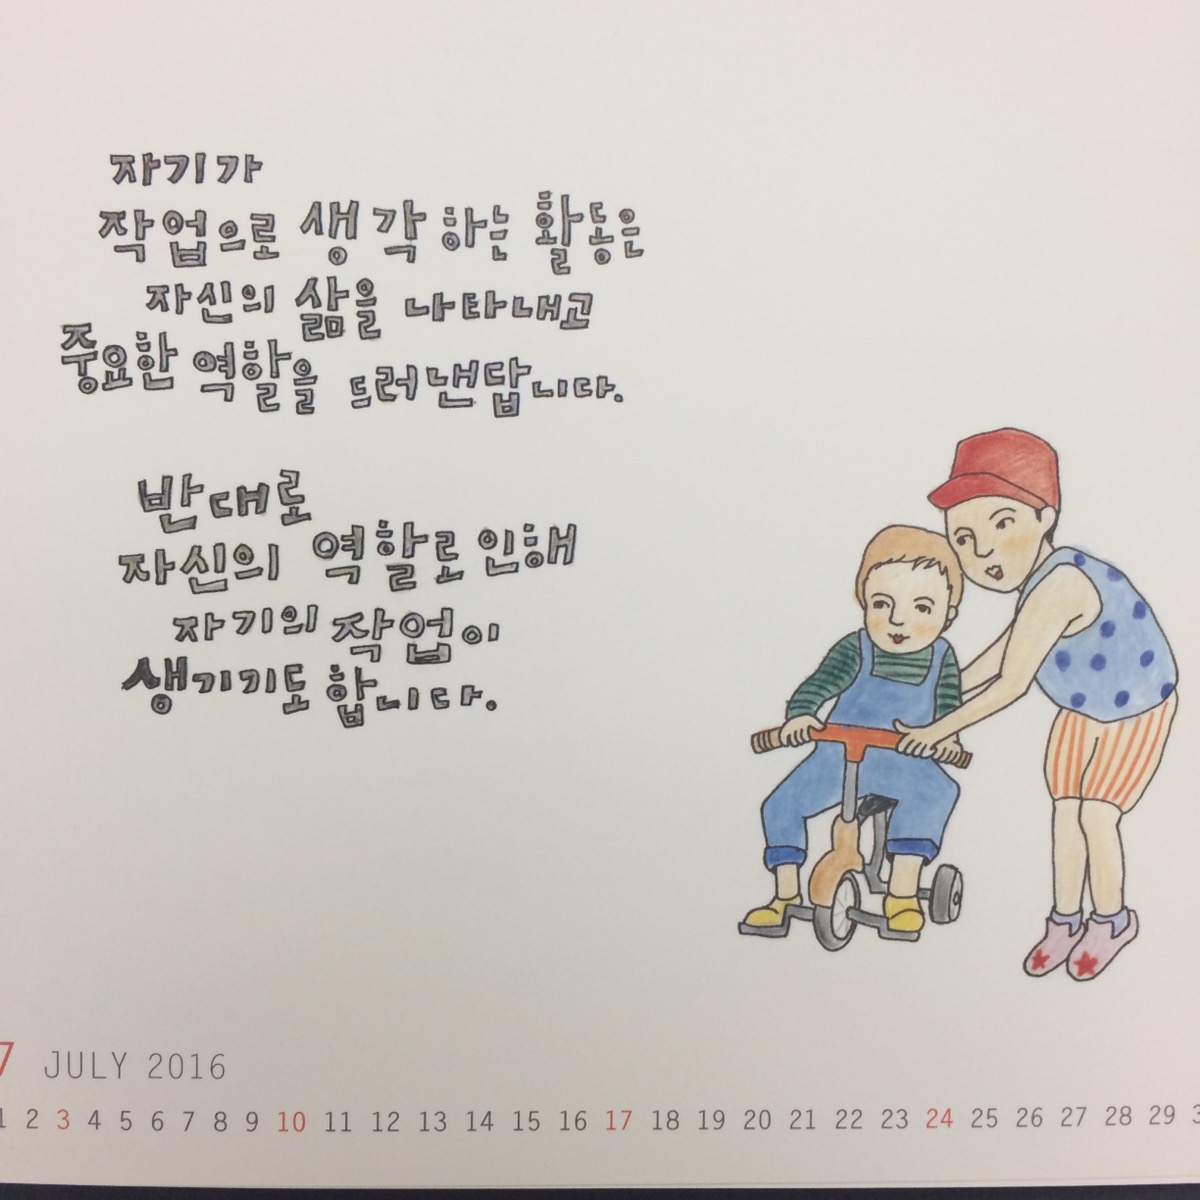 자기가
작업으로 생각하는 활동은
자신의 삶을 나타내고
중요한 역할을 드러낸답니다.
반대로
자신의 역할로 인해
자기의 작업이
생기기도 합니다.
7 JULY 2016
1 2 3 4 5 6 7 8 9 10 11 12 13 14 15 16 17 18 19 20 21 22 23 24 25 26 27 28 29